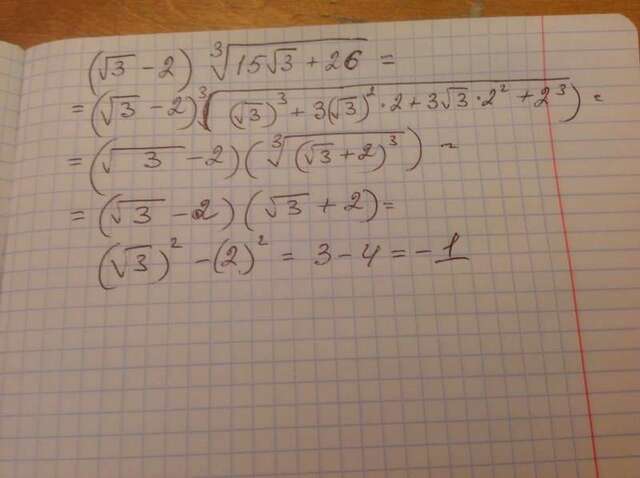 (√3 - 2) ∛(15√3 + 26) =
= (√3 - 2)(∛((√3)³ + 3(√3)² · 2 + 3√3 · 2² + 2³)) =
= (√3 - 2)(∛((√3 + 2)³)) =
= (√3 - 2)(√3 + 2) =
(√3)² - (2)² = 3 - 4 = - 1